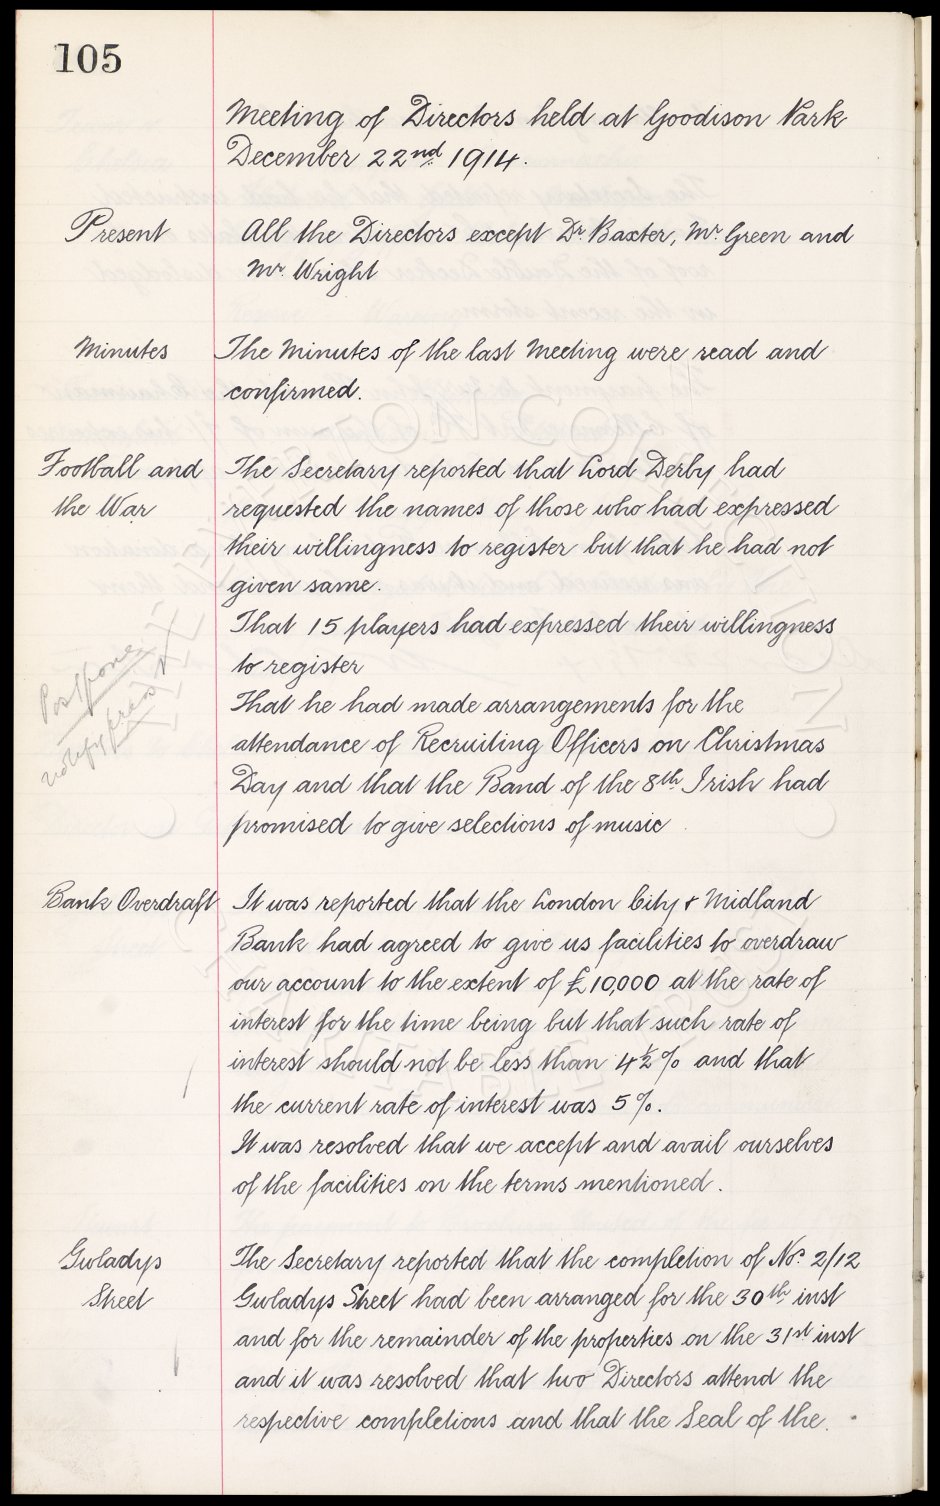 105
Meeting of Directors held at Goodison Park
December 22nd 1914.
Present
All the Directors except Dr. Baxter, Mr. Green and
Mr. Wright
Minutes
The Minutes of the last Meeting were read and
confirmed.
Football and
the War
The Secretary reported that Lord Derby had
requested the names of those who had expressed
their willingness to register but that he had not
given same.
That 15 players had expressed their willingness
to register
Postpone
notify press
That he had made arrangements for the
attendance of Recruiting Officers on Christmas
Day and that the Band of the 8th Irish had
promised to give selections of music
Bank Overdraft
It was reported that the London City & Midland
Bank had agreed to give us facilities to overdraw
our account to the extent of £10,000 at the rate of
interest for the time being but that such rate of
interest should not be less than 4½% and that
the current rate of interest was 5%.
It was resolved that we accept and avail ourselves
of the facilities on the terms mentioned.
Gwladys
Street
The Secretary reported that the completion of No. 2/12
Gwladys Street had been arranged for the 30th inst
and for the remainder of the properties on the 31st inst
and it was resolved that two Directors attend the
respective completions and that the Seal of the